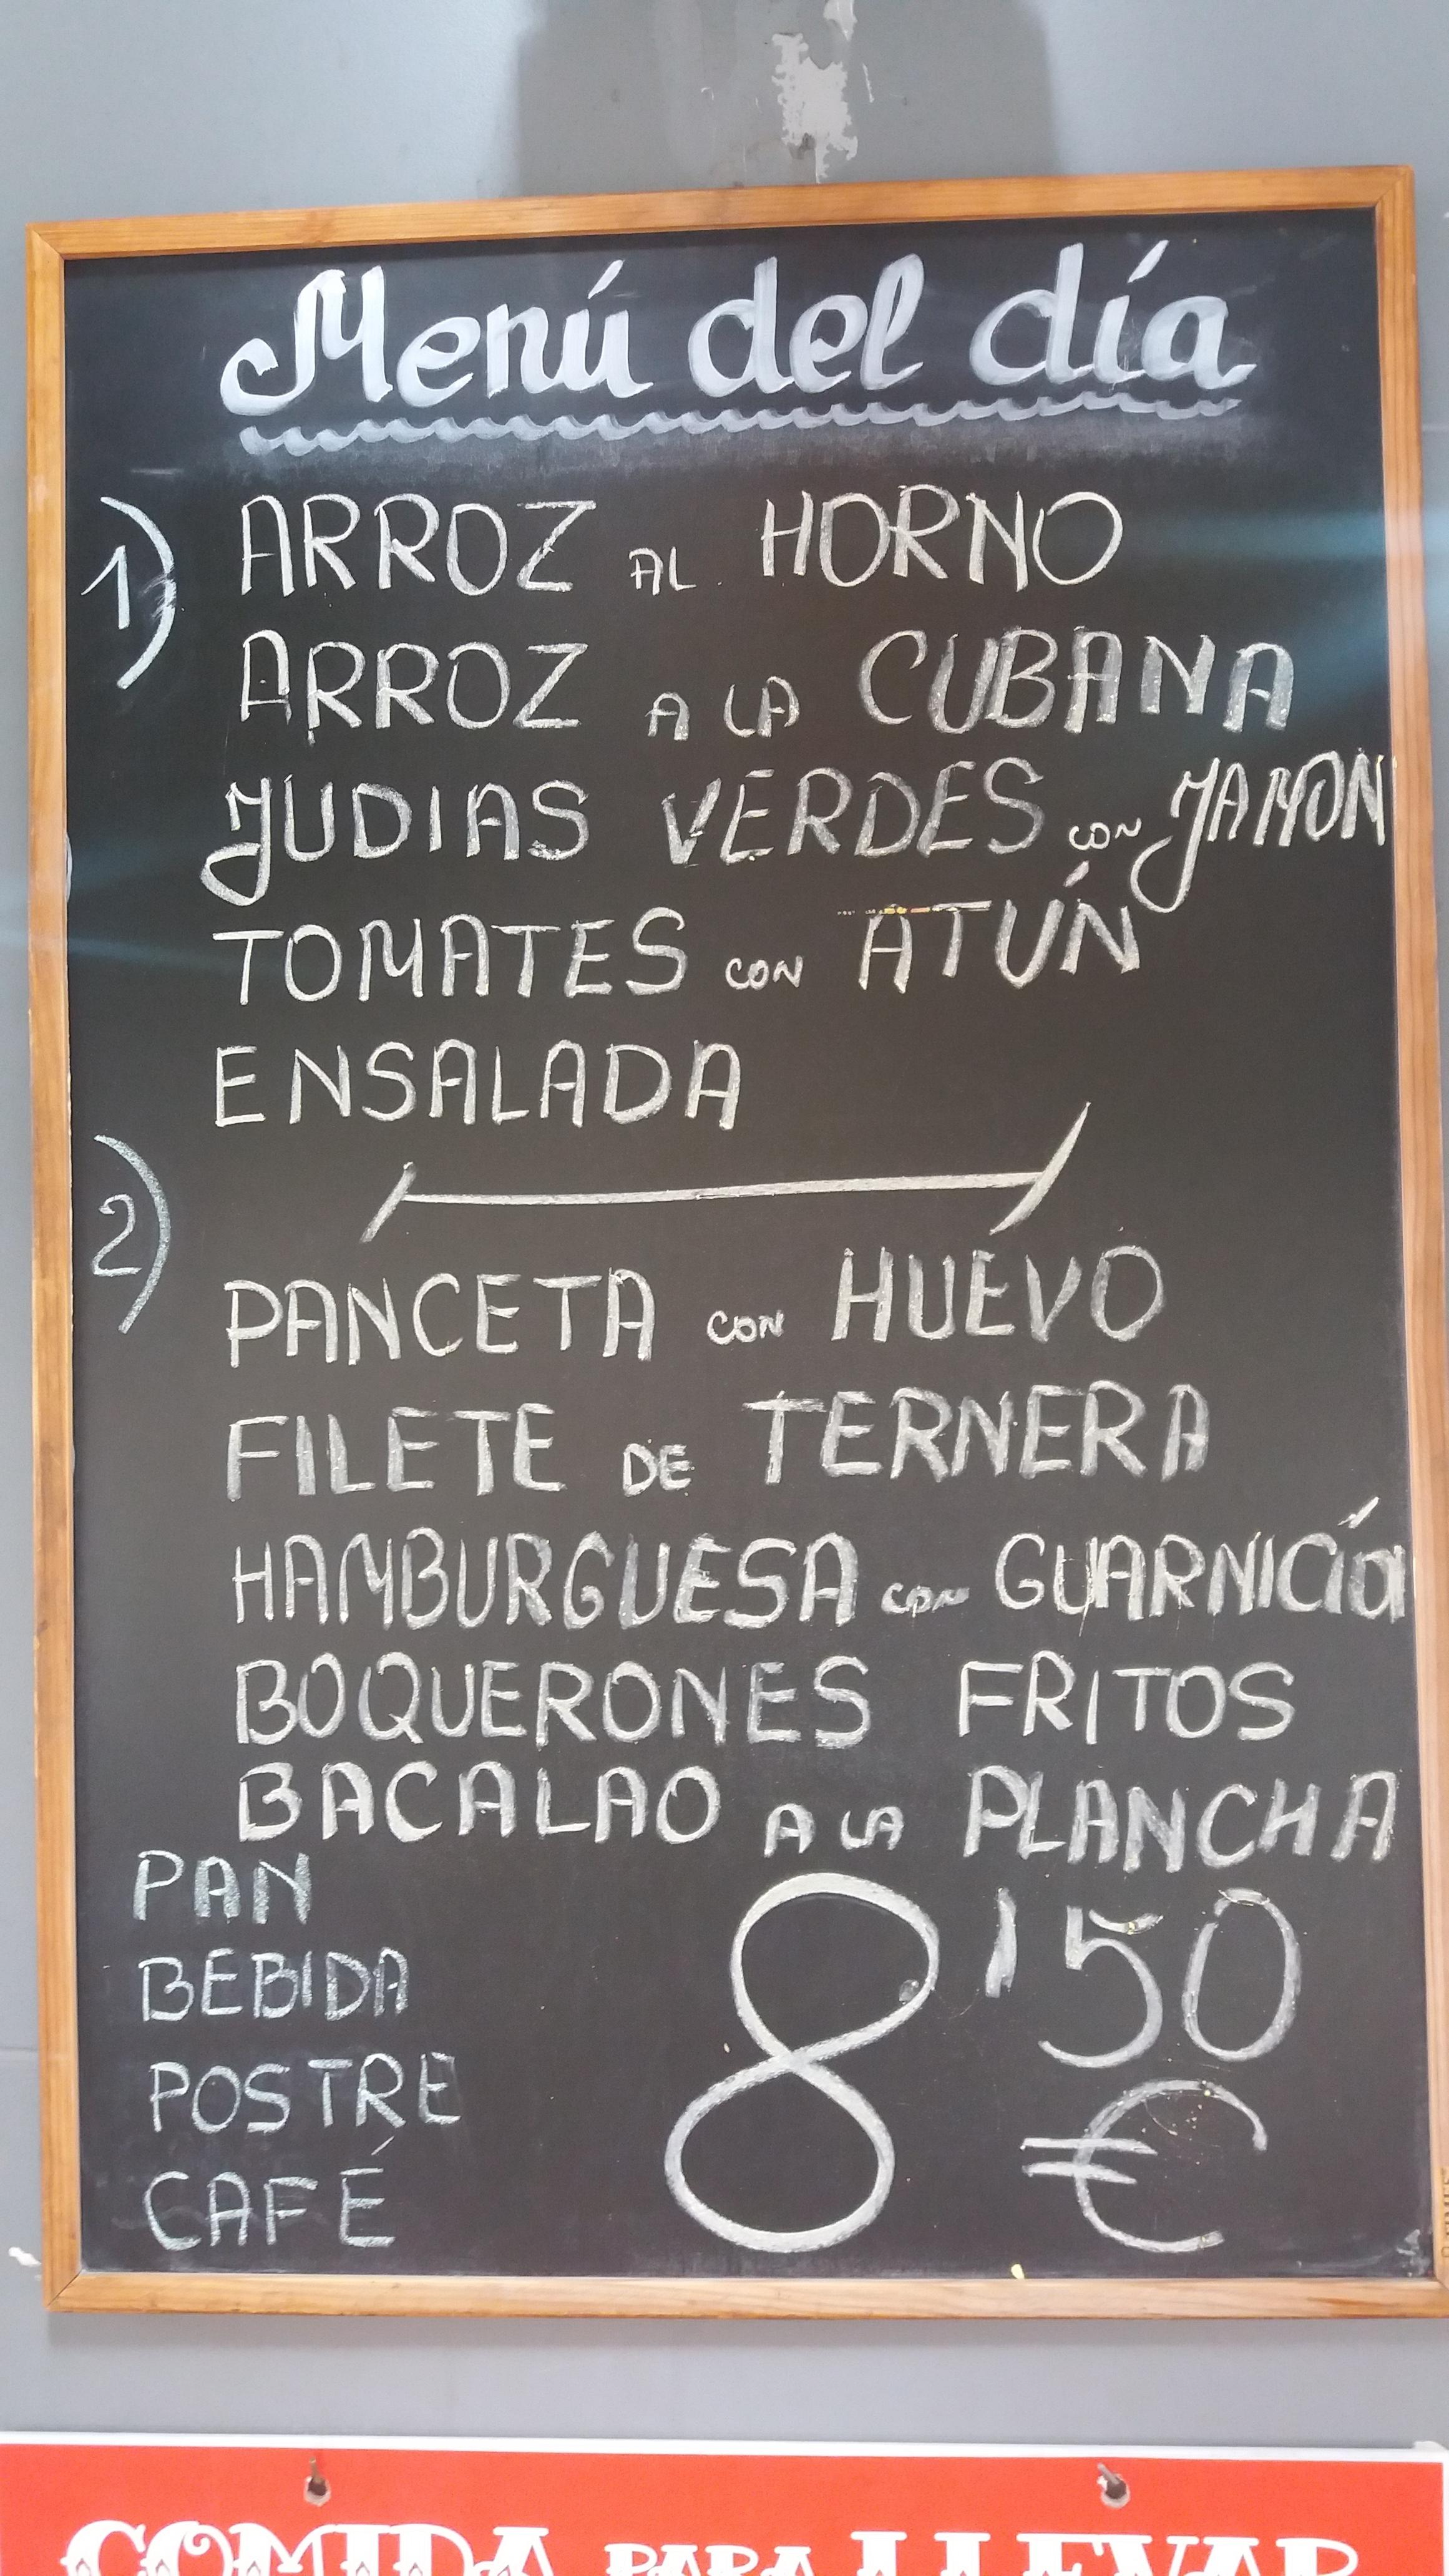 Menú del día
1) ARROZ AL HORNO
ARROZ A LA CUBANA
JUDIAS VERDES CON JAMON
TOMATES CON ATÚN
ENSALADA
2)
PANCETA CON HUEVO
FILETE DE TERNERA
HAMBURGUESA CON GUARNICIÓN
BOQUERONES FRITOS
BACALAO A LA PLANCHA
PAN
BEBIDA
POSTRE
CAFÉ
8'50
€
COMIDA PARA LLEVAR